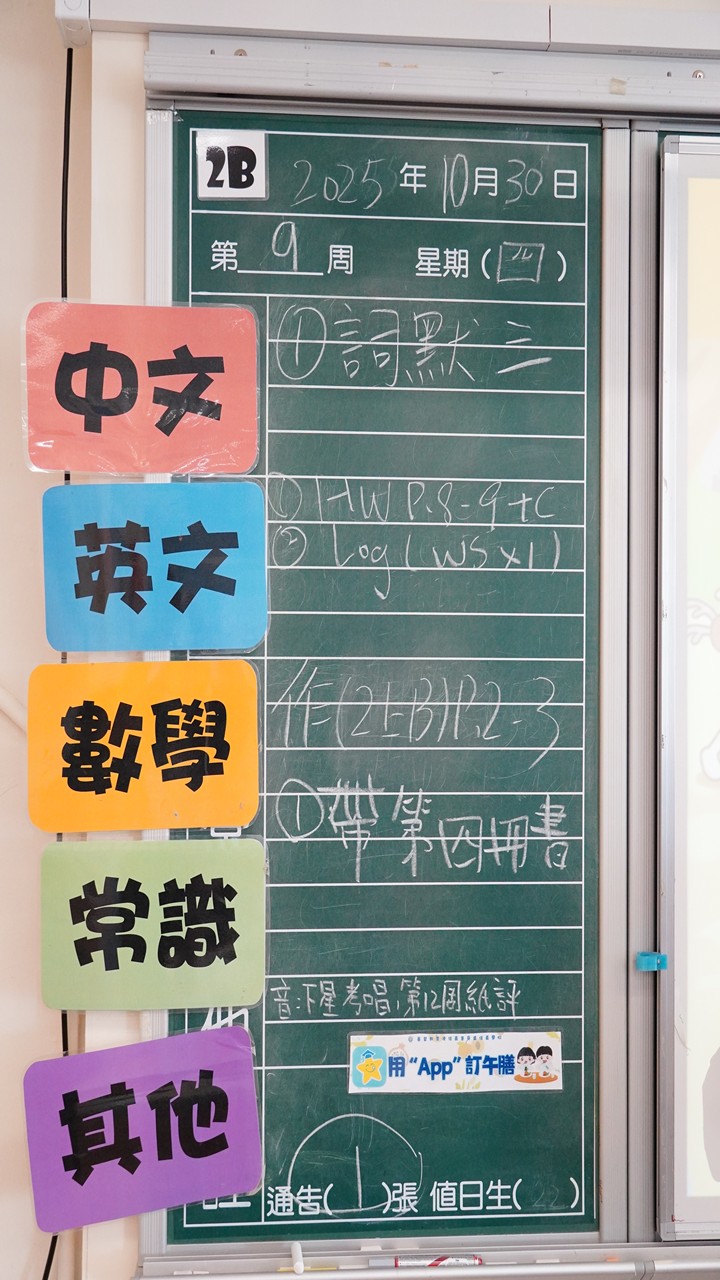 2B 2025年10月30日
第9周 星期(四)
中文
①詞默三
英文
① HW P.8-9+C
② Log (WS x1)
數學
作(2上B)P.2-3
①帶第四冊書
常識
音:下星考唱,第12周紙評
用“App”訂午膳
其他
通告(1)張 值日生(22)